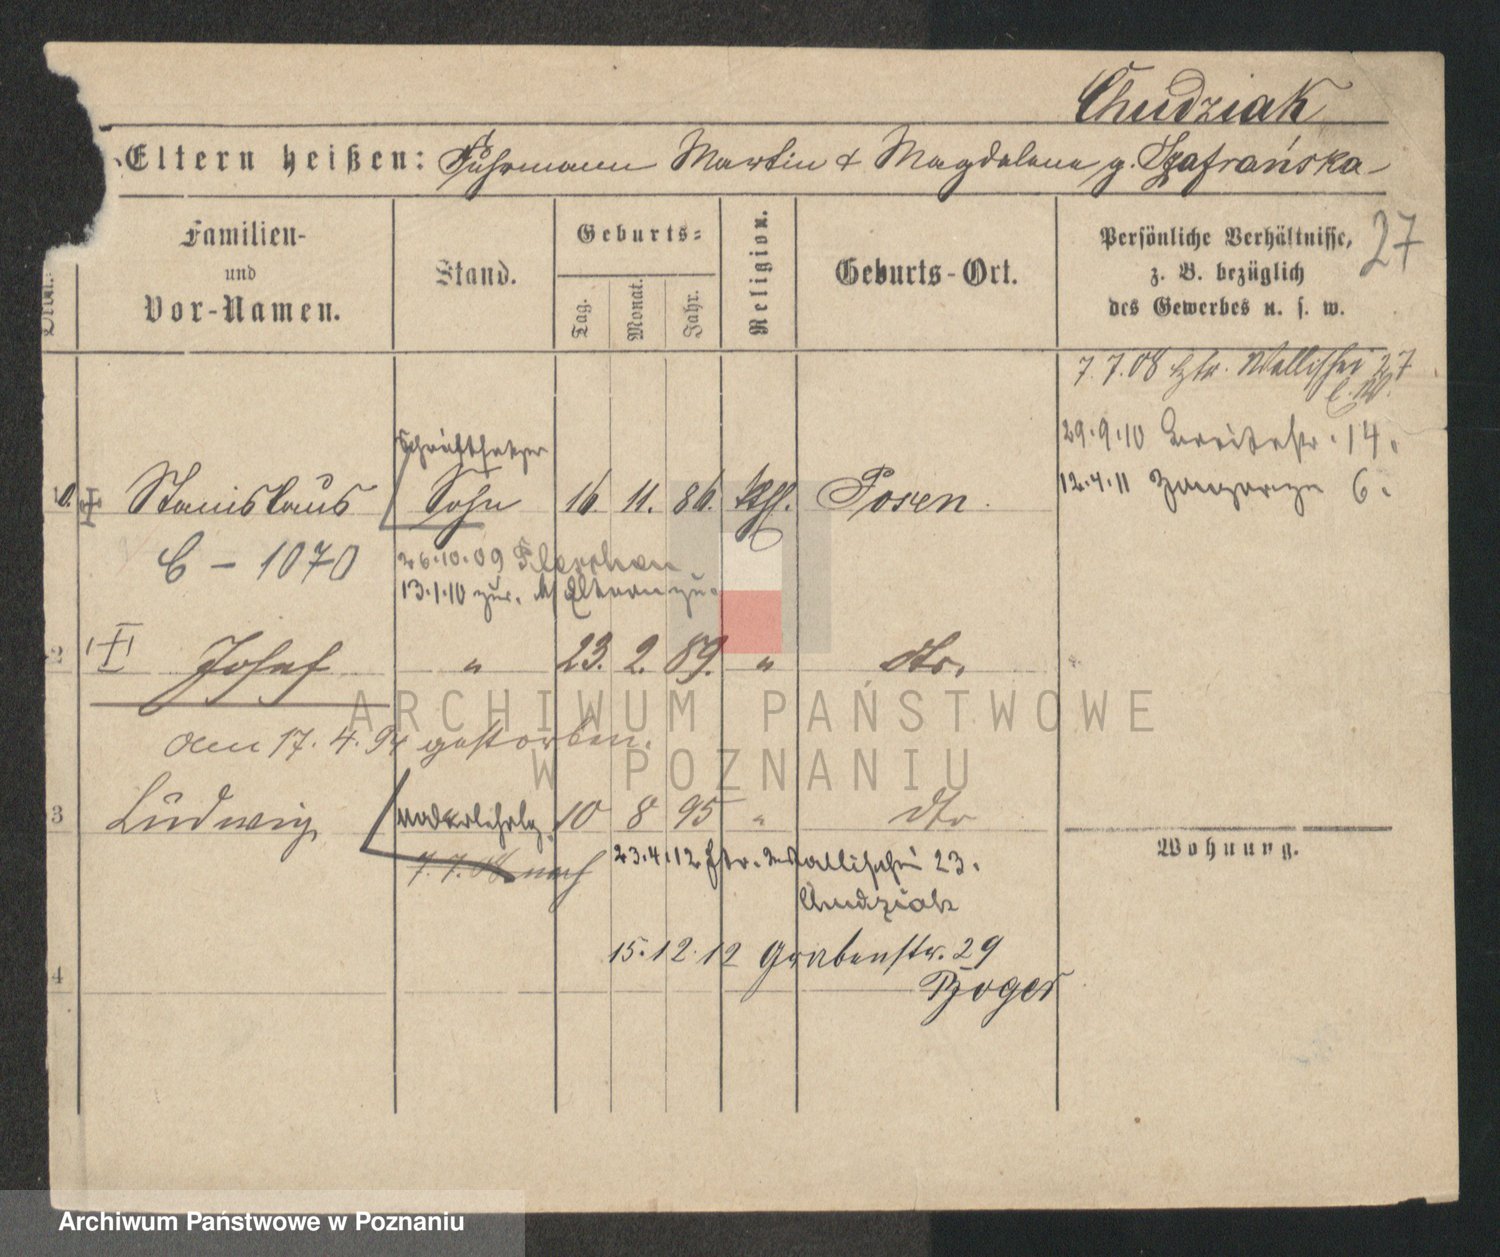 Chudziak
Eltern heißen: Fuhrmann Martin & Magdalena g. Szafrańska
Familien- und Vor-Namen.
Stand.
Geburts-
Tag.
Monat.
Jahr.
Religion.
Geburts-Ort.
Persönliche Verhältnisse,
z. B. bezüglich
des Gewerbes u. s. w.
27
7.7.08 Wallischei 27
29.9.10 Breitestr. 14.
12.4.11 6.
Schriftsetzer
Stanislaus Sohn 16 11. 86. kth. Posen
C - 1070
26.10.09
13.1.10 zur. Eltern zu.
2 Josef " 23. 2. 89. " dto.
am 17. 4. 94 gestorben.
3 Ludwig 10 8 95 " dto
7.7.08 nach
23.4.12 Wallischei 23.
Chudziak
15.12.12 Grabenstr. 29
4
Wohnung.
ARCHIWUM PAŃSTWOWE
W POZNANIU
Archiwum Państwowe w Poznaniu